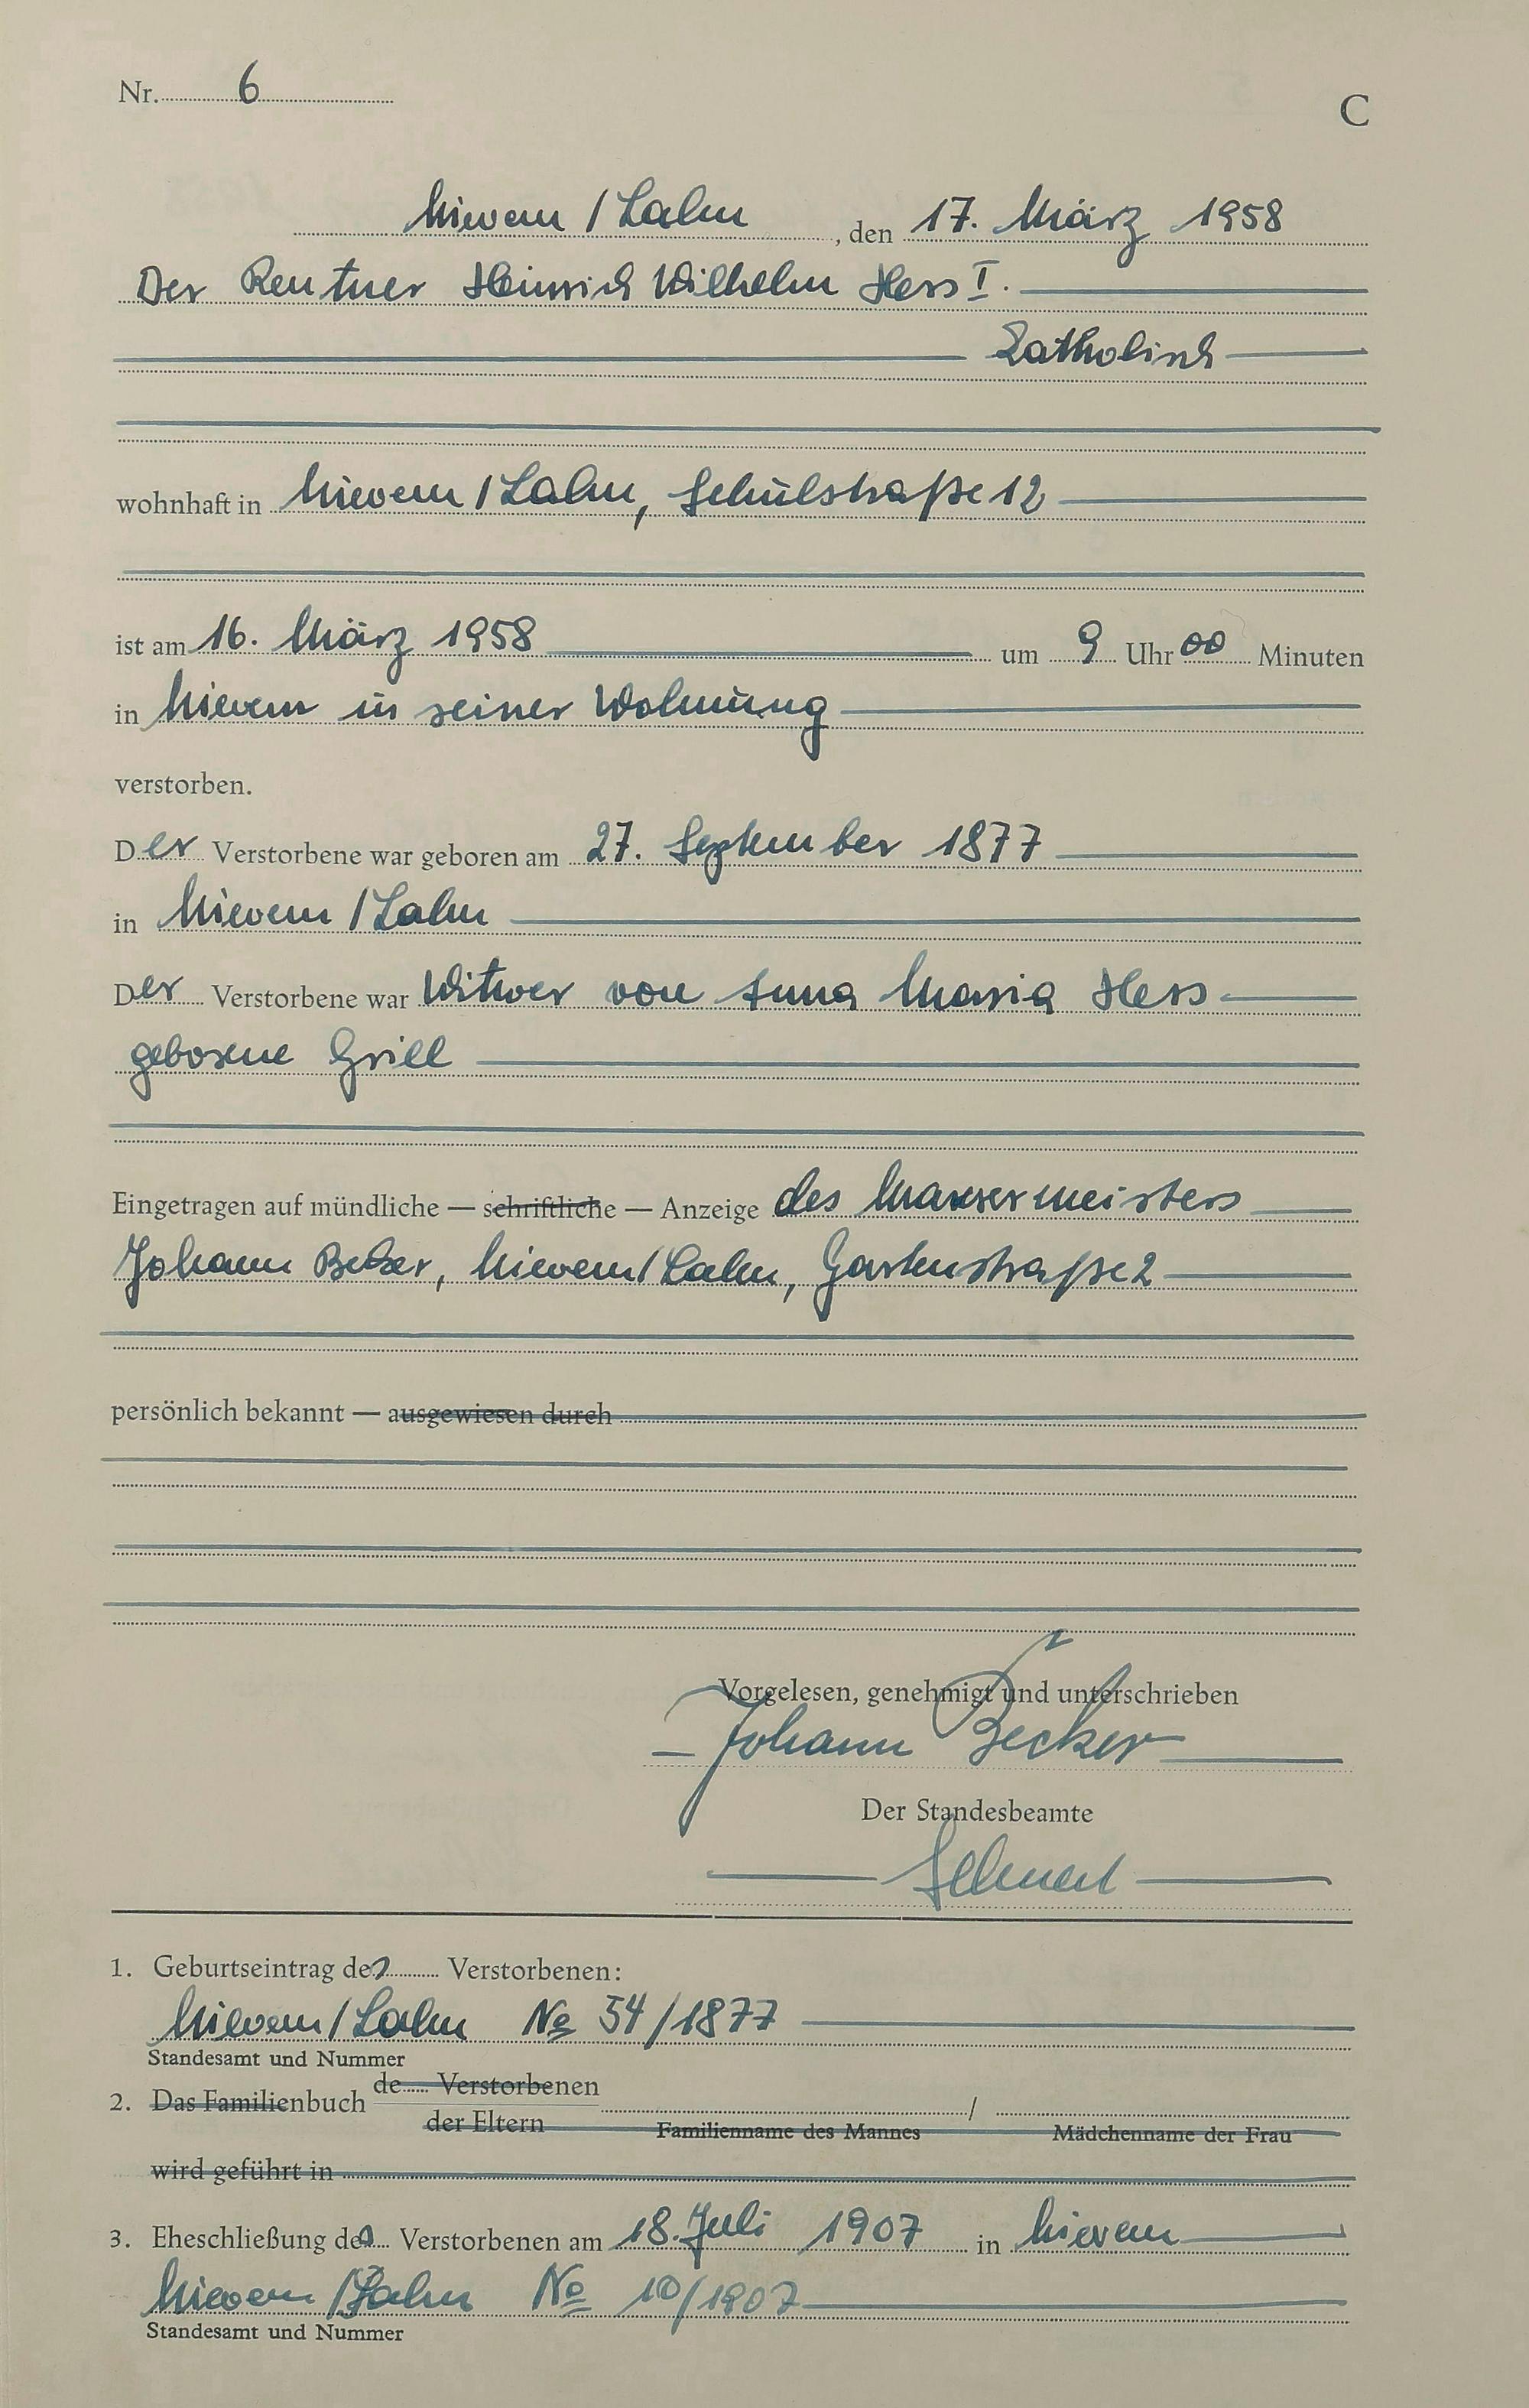 Nr. 6
C
Nievern / Lahn, den 17. März 1958
Der Rentner Heinrich Wilhelm Hess I.
katholisch
wohnhaft in Nievern / Lahn, Schulstraße 12
ist am 16. März 1958 um 9 Uhr 00 Minuten
in Nievern in seiner Wohnung
verstorben.
Der Verstorbene war geboren am 27. September 1877
in Nievern / Lahn
Der Verstorbene war Witwer von Anna Maria Hess
geborene Grill
Eingetragen auf mündliche — schriftliche — Anzeige des Maurermeisters
Johann Becker, Nievern / Lahn, Gartenstraße 2
persönlich bekannt — ausgewiesen durch
Vorgelesen, genehmigt und unterschrieben
Johann Becker
Der Standesbeamte
1. Geburtseintrag des Verstorbenen:
Nievern / Lahn No 54/1877
Standesamt und Nummer
2. Das Familienbuch de Verstorbenen
der Eltern / Familienname des Mannes Mädchenname der Frau
wird geführt in
3. Eheschließung des Verstorbenen am 18. Juli 1907 in Nievern
Nievern / Lahn No 10/1907
Standesamt und Nummer